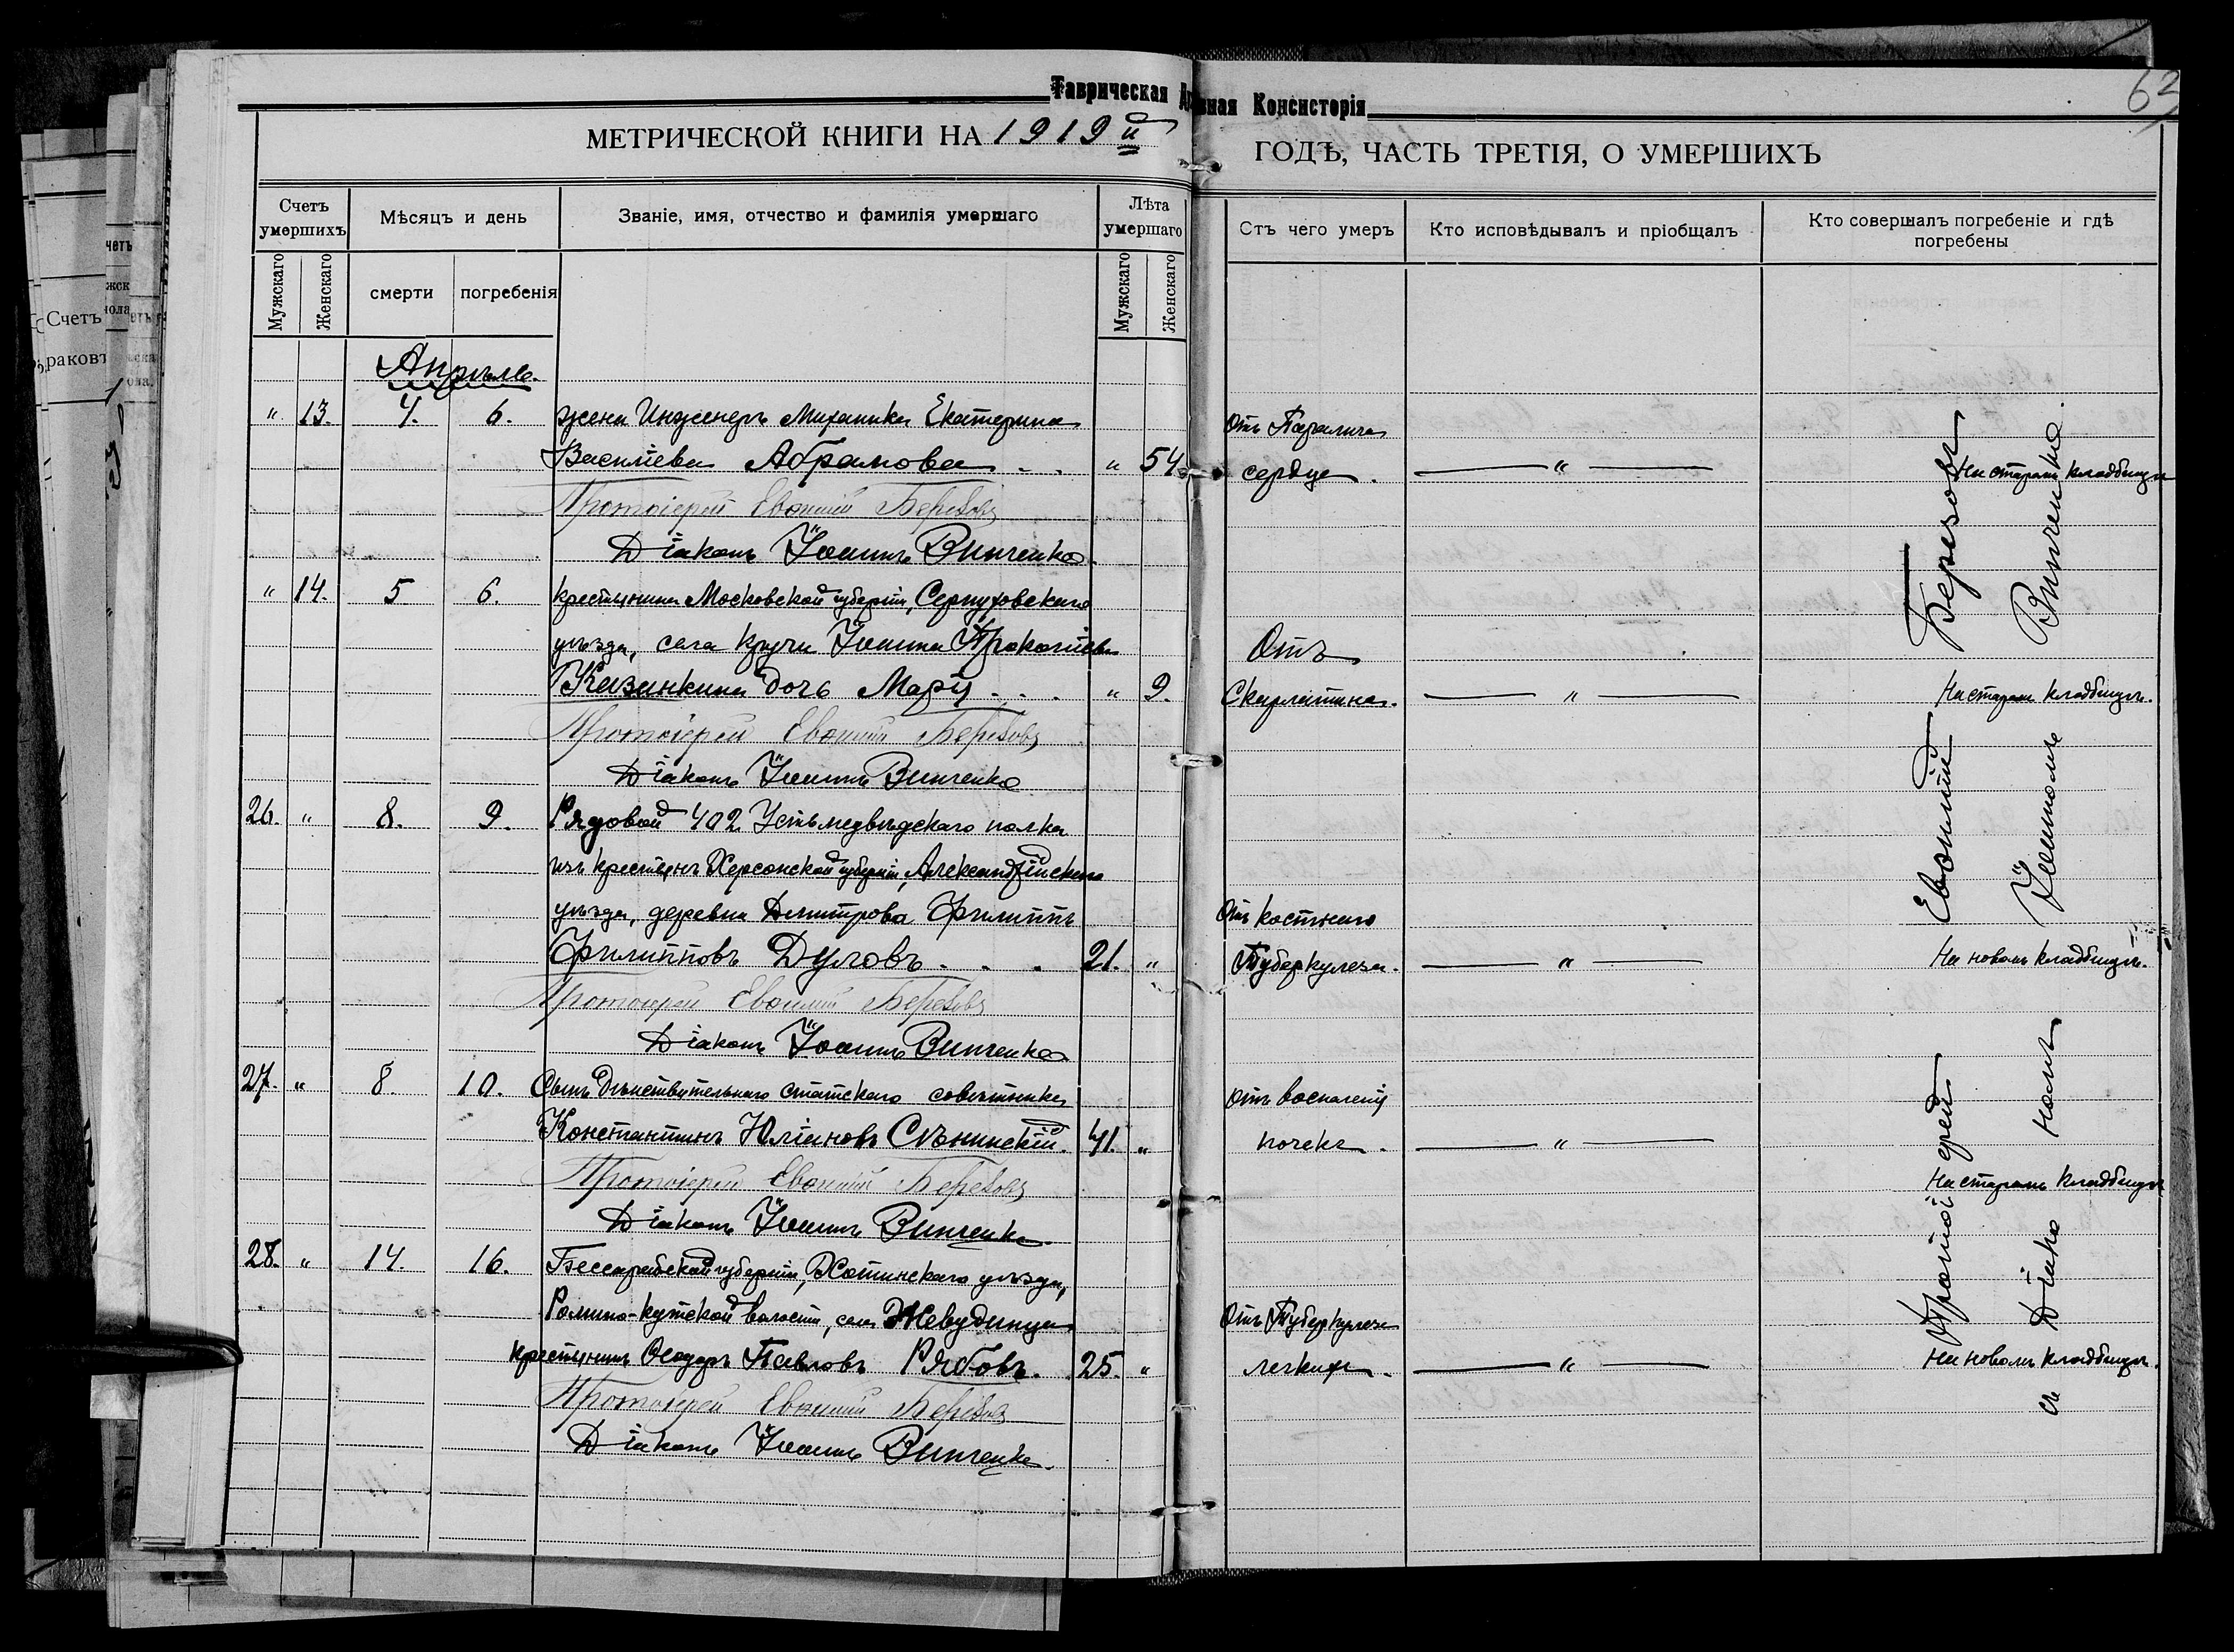 Таврическая
ная Консисторія
63
МЕТРИЧЕСКОЙ КНИГИ НА 1919й
ГОДЪ, ЧАСТЬ ТРЕТІЯ, О УМЕРШИХЪ
Счетъ умершихъ
Мѣсяцъ и день
Званіе, имя, отчество и фамилія умершаго
Лѣта умершаго
Мужскаго
Женскаго
смерти
погребенія
Мужскаго
Женскаго
Отъ чего умеръ
Кто исповѣдывалъ и пріобщалъ
Кто совершалъ погребеніе и гдѣ погребены
Апрѣль.
" 13. 4. 6. жена Инженеръ Механика Екатерина
Василіева Абрамова " 54
Отъ Паралича
сердца. — " — На старомъ кладбищѣ
Протоіерей Евѳимій Березовъ
Діаконъ Іоаннъ Винченко
" 14. 5 6. крестьянина Московской губерніи, Серпуховскаго
уѣзда, села Іоанна Прокопіева
Казанкина дочь Марія " 9.
Отъ
Скарлатина. — " — На старомъ кладбищѣ.
Протоіерей Евѳимій Березовъ
Діаконъ Іоаннъ Винченко
26. " 8. 9. Рядовой 402 Усть-медвѣдскаго полка
изъ крестьянъ Херсонской губерніи, Александрійскаго
уѣзда, деревни Дмитрова Филиппъ
Филипповъ Дуловъ 21. "
Отъ костнаго
Туберкулеза. — " — На новомъ кладбищѣ.
Протоіерей Евѳимій Березовъ
Діаконъ Іоаннъ Винченко
27. " 8. 10. Сынъ Дѣйствительнаго статскаго совѣтника
Константинъ Юліановъ Сѣнинскій. 41. "
отъ воспаленія
почекъ. — " — На старомъ кладбищѣ
Протоіерей Евѳимій Березовъ
Діаконъ Іоаннъ Винченко
28. " 14. 16. Бессарабской губерніи, Хотинскаго уѣзда,
волости, села
крестьянинъ Ѳеодоръ Павловъ Рябовъ. 25. "
Отъ Туберкулеза
легкихъ. — " — На новомъ кладбищѣ.
Протоіерей Евѳимій Березовъ
Діаконъ Іоаннъ Винченко.
Протоіерей Евѳимій Березовъ
съ Діакономъ Іоанномъ Винченко.
Счетъ
раковъ